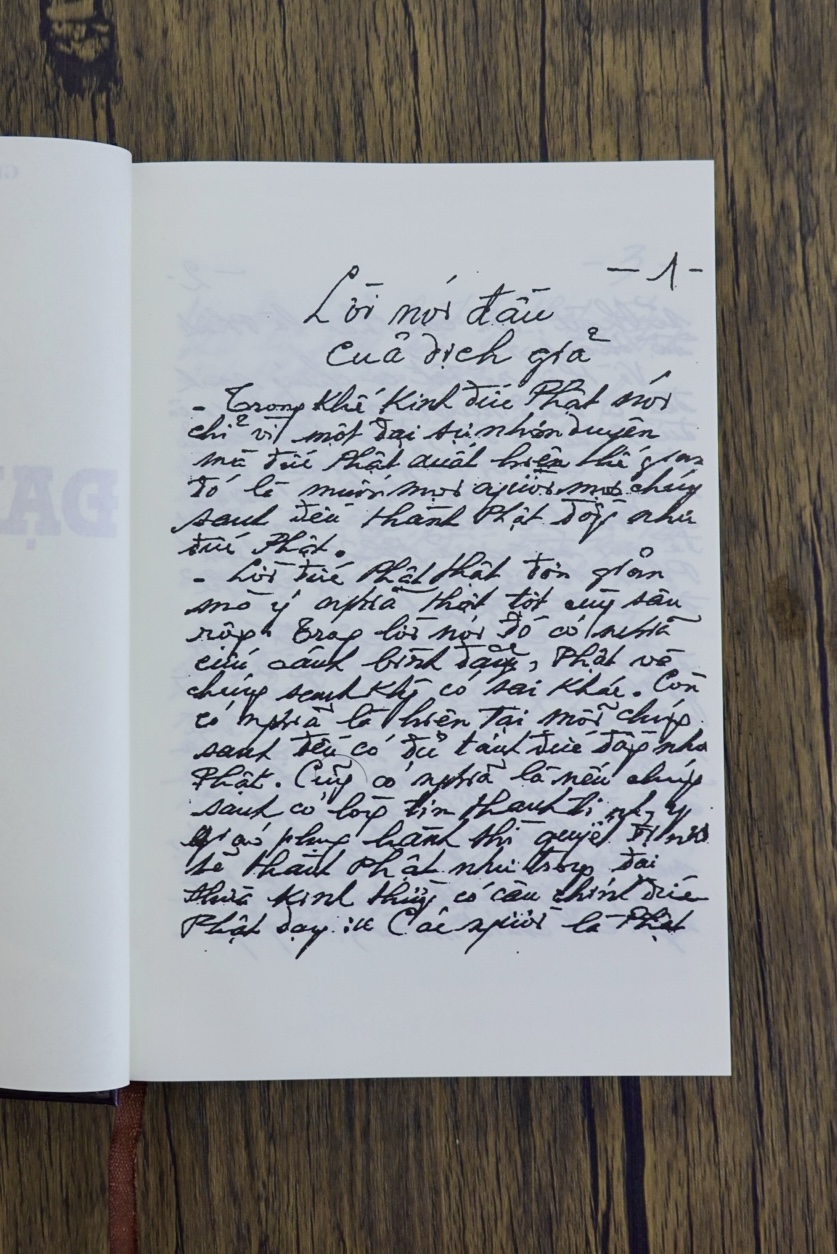 - 1 -
Lời nói đầu
của dịch giả
- Trong Khế Kinh đức Phật nói
chỉ vì một đại sự nhơn duyên
mà đức Phật xuất hiện thế gian
đó là muốn mọi người mọi chúng
sanh đều thành Phật đồng như
đức Phật.
- Lời đức Phật thật đơn giản
mà ý nghĩa thật tột cùng sâu
rộng. Trong lời nói đó có nghĩa
cứu cánh bình đẳng, Phật và
chúng sanh không có sai khác. Còn
có nghĩa là hiện tại mỗi chúng
sanh đều có đủ tánh đức đồng như
Phật. Cũng có nghĩa là nếu chúng
sanh có lòng tin thanh tịnh, y
giáo phụng hành thì quyết định
sẽ thành Phật như trong đại
thừa Kinh thường có câu chính đức
Phật dạy :" Các người là Phật
ĐẠ